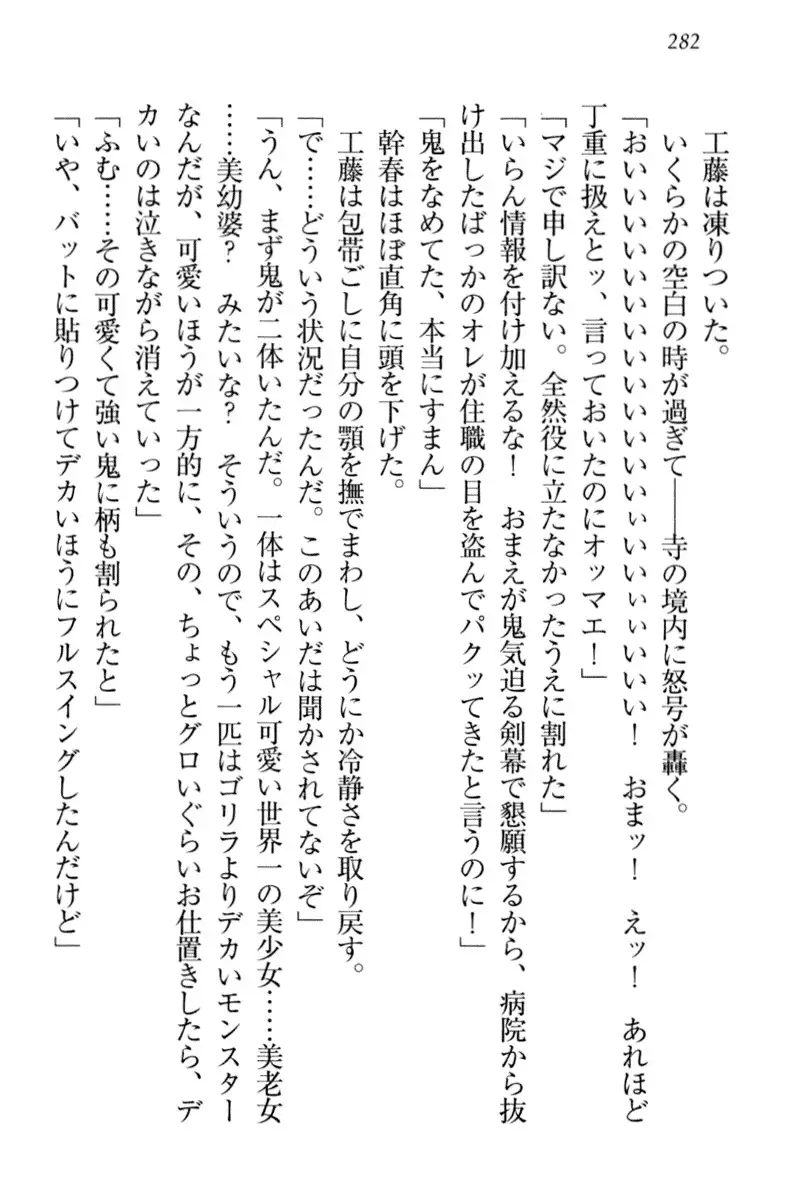 282
工藤は凍りついた。
いくらかの空白の時が過ぎて――寺の境内に怒号が轟く。
「おいいいいいいいいいいいいいいいいぃいいいぃぃいいい！　おまッ！　えッ！　あれほど
丁重に扱えとッ、言っておいたのにオッマエ！」
「マジで申し訳ない。全然役に立たなかったうえに割れた」
「いらん情報を付け加えるな！　おまえが鬼気迫る剣幕で懇願するから、病院から抜
け出したばっかのオレが住職の目を盗んでパクッてきたと言うのに！」
「鬼をなめてた、本当にすまん」
幹春はほぼ直角に頭を下げた。
工藤は包帯ごしに自分の顎を撫でまわし、どうにか冷静さを取り戻す。
「で……どういう状況だったんだ。このあいだは聞かされてないぞ」
「うん、まず鬼が二体いたんだ。一体はスペシャル可愛い世界一の美少女……美老女
……美幼婆？　みたいな？　そういうので、もう一匹はゴリラよりデカいモンスター
なんだが、可愛いほうが一方的に、その、ちょっとグロいぐらいお仕置きしたら、デ
カいのは泣きながら消えていった」
「ふむ……その可愛くて強い鬼に柄も割られたと」
「いや、バットに貼りつけてデカいほうにフルスイングしたんだけど」